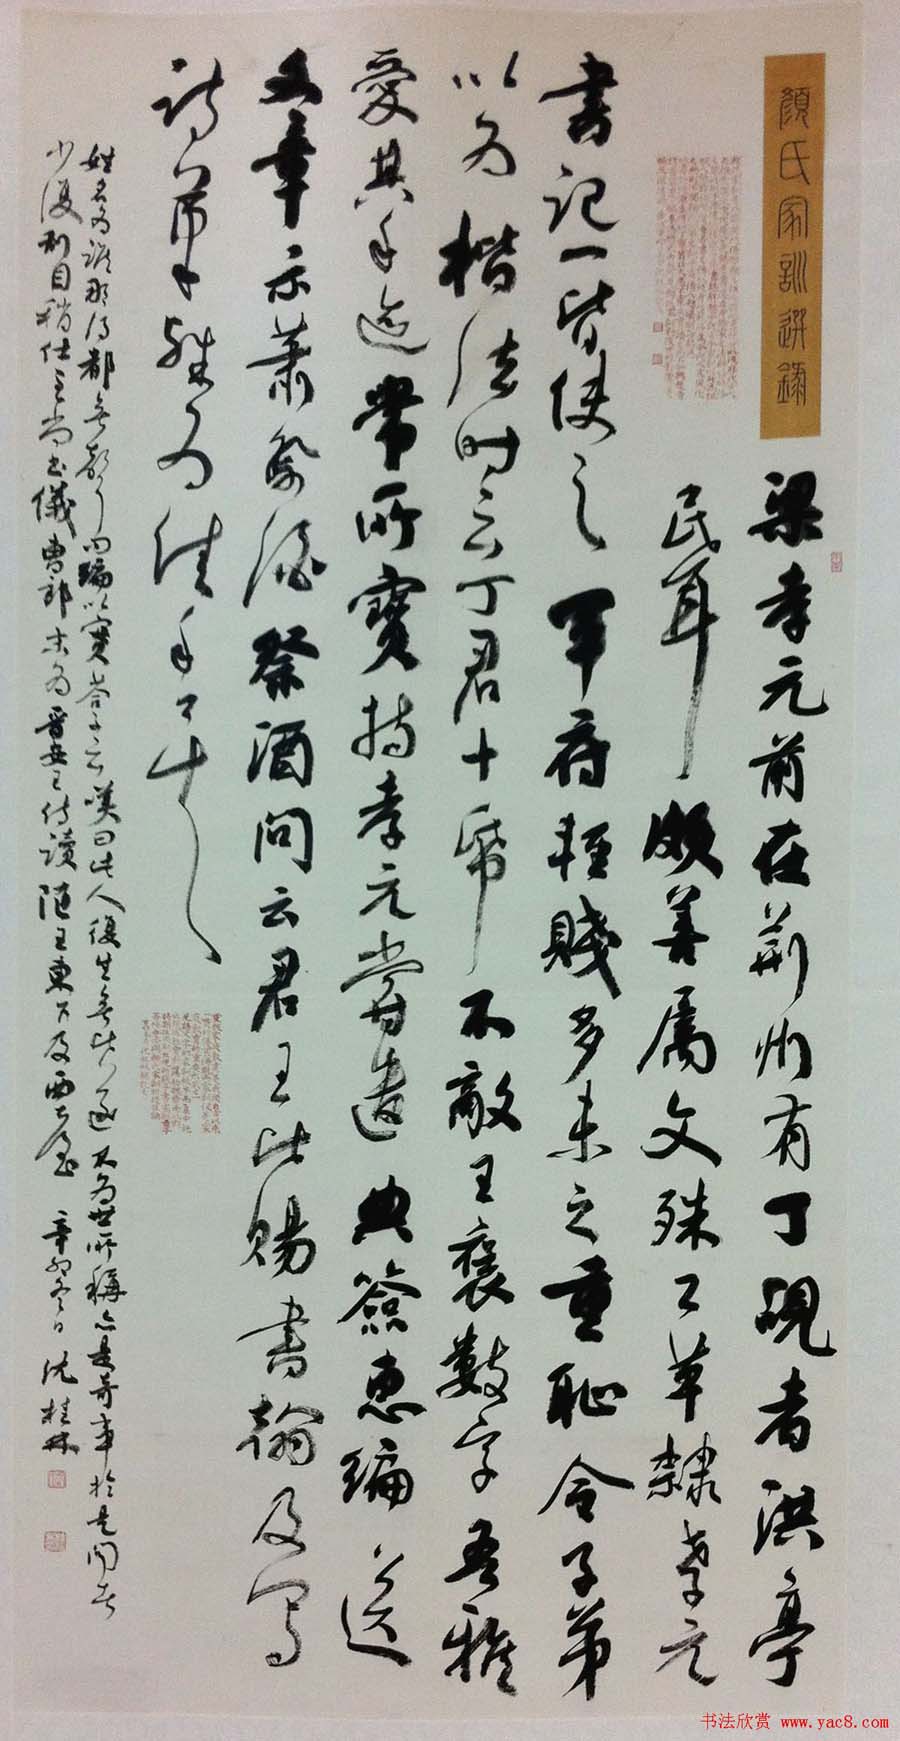 顔氏家訓選錄
梁孝元前在荊州有丁覘者洪亭
民耳頗善屬文殊工草隸孝元
書記一皆使之軍府輕賤多未之重恥令子弟
以為楷法時云丁君十紙不敵王褒數字吾雅
愛其手迹常所寶持孝元嘗遣典簽惠編送
文章示蕭祭酒祭酒問云君王比賜書翰及寫
詩筆殊為佳手
姓名為誰那得都無聲問編以實答子云嘆曰此人後生無比遂不為世所稱亦是奇事於是聞者
少復刮目稍仕至尚書儀曹郎末為晉安王侍讀隨王東下及西臺
辛卯冬日沈桂林
书法欣赏 www.yac8.com